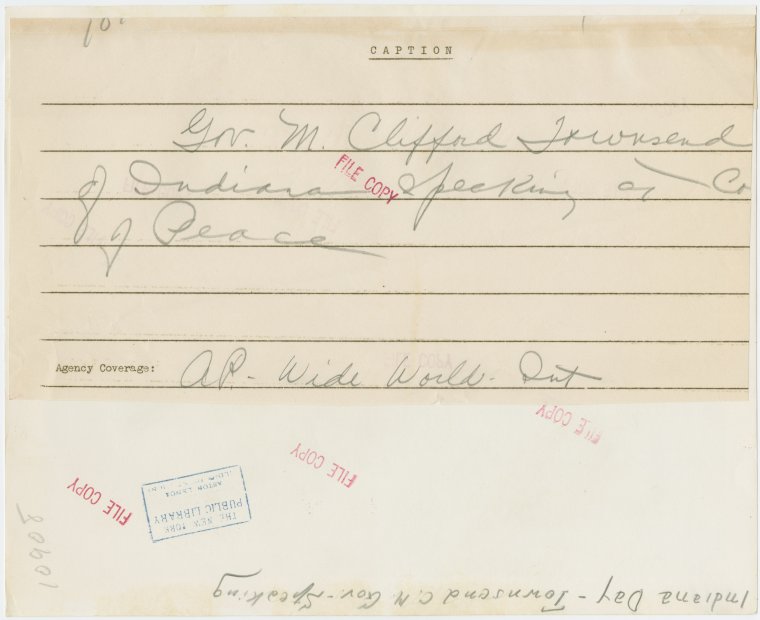 CAPTION
Gov. M. Clifford Townsend
of Indiana Specking at Co
of Peace
FILE COPY
Agency Coverage: AP. - Wide World - Int
FILE COPY
FILE COPY
FILE COPY
THE NEW YORK
PUBLIC LIBRARY
ASTOR LENOX
10908
Indiana Day - Townsend C. M. Gov. - Speaking